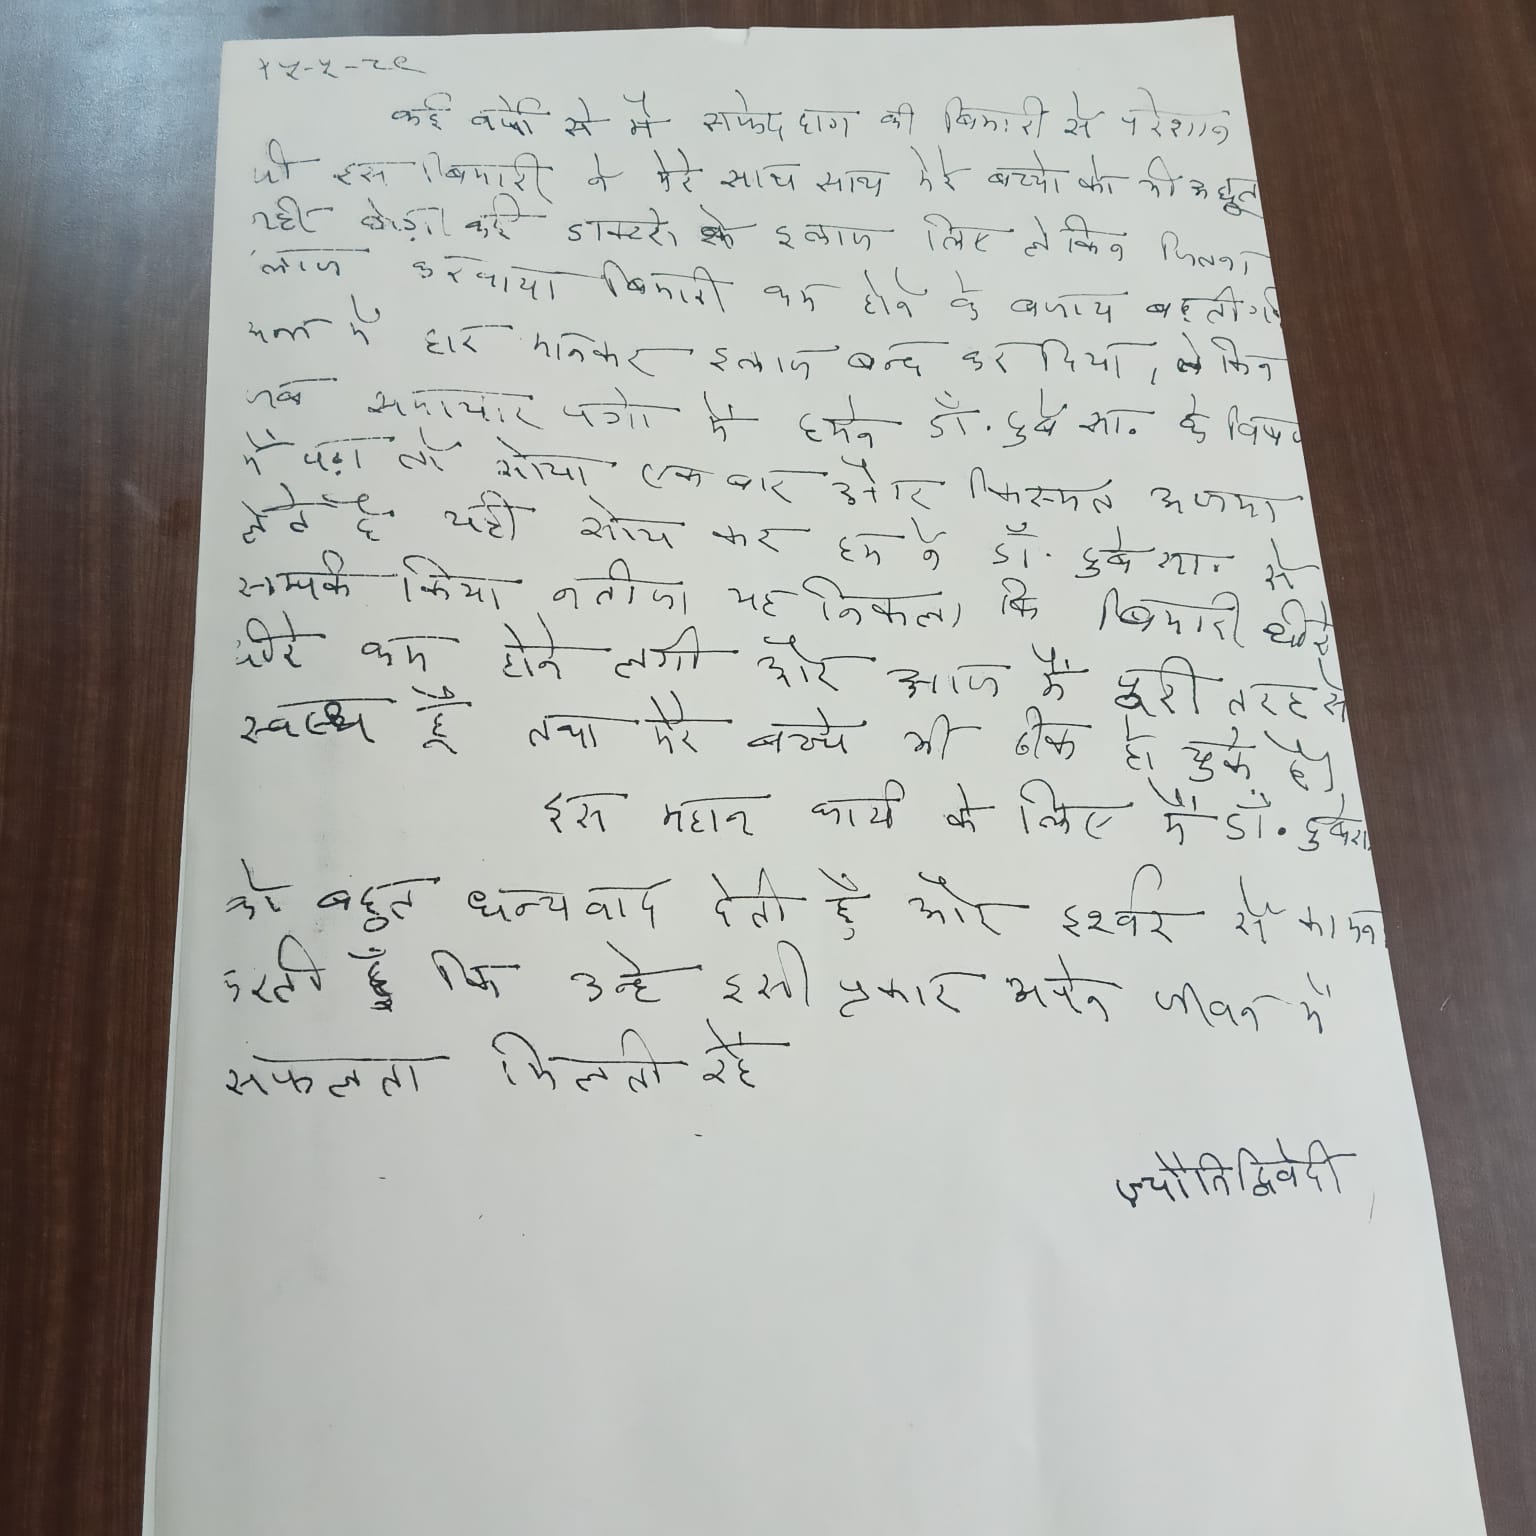 कई वर्षो से मै सफेद दाग की बिमारी से परेशान
थी इस बिमारी ने मेरे साथ साथ मेरे बच्चो को भी अछूत
नही छोड़ा कई डाक्टरो के इलाज लिए लेकिन जितना
लाज करवाया बिमारी कम होने के बजाय बढ़ती गई
में हार मानकर इलाज बन्द कर दिया, लेकिन
जब समाचार पत्रो में हमने डॉ. दुबे सा. के विषय
में पढ़ा तो सोचा एक बार और किस्मत अजमा
लेते है यही सोच कर हम ने डॉ. दुबे सा. से
सम्पर्क किया नतीजा यह निकला कि बिमारी धीरे
धीरे कम होने लगी और आज मैं पूरी तरह से
स्वस्थ हूँ तथा मेरे बच्चे भी ठीक हो चुके है।
इस महान कार्य के लिए मैं डॉ. दुबे सा
को बहुत धन्यवाद देती हूँ और इश्वर से कामन
करती हूँ कि उन्हे इसी प्रकार अपने जीवन में
सफलता मिलती रहे
ज्योति द्विवेदी